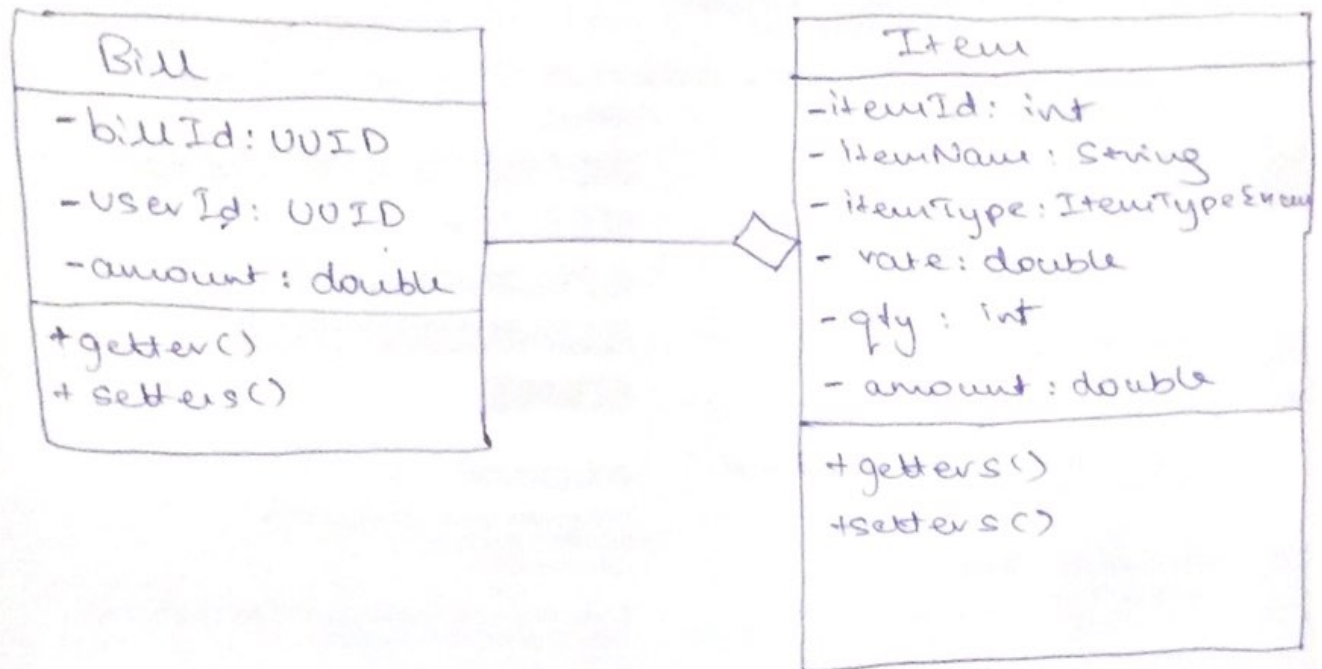 Bill
- billId: UUID
- userId: UUID
- amount: double
+ getter()
+ setters()
Item
- itemId: int
- itemName: String
- itemType: ItemTypeEnum
- rate: double
- qty: int
- amount: double
+ getters()
+ setters()